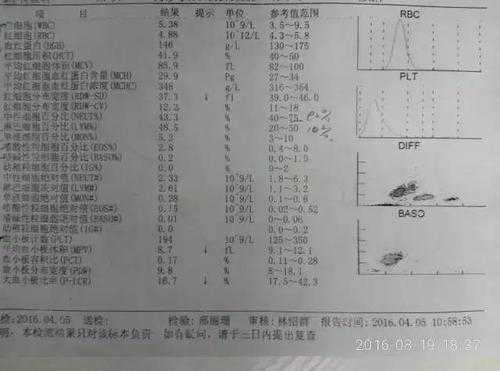 项 目 结果 提示 单位 参考值范围
白细胞(WBC) 5.38 10^9/L 3.5~9.5
红细胞(RBC) 4.88 10^12/L 4.3~5.8
血红蛋白(HGB) 146 g/L 130~175
红细胞压积(HCT) 41.9 % 40~50
平均红细胞体积(MCV) 85.9 fL 82~100
平均红细胞血红蛋白含量(MCH) 29.9 Pg 27~34
平均红细胞血红蛋白浓度(MCHC) 348 g/L 316~364
红细胞分布宽度(RDW-SD) 37.3 ↓ fl 39.0~46.0
红细胞分布宽度(RDW-CV) 12.2 % 11~18
中性细胞百分比(NEUT%) 43.3 % 40~75
淋巴细胞百分比(LYM%) 48.5 % 20~50
单核细胞百分比(MON%) 5.2 % 3~10
嗜酸性粒细胞百分比(EOS%) 2.8 % 0.4~8.0
嗜碱性粒细胞百分比(BASO%) 0.2 % 0.0~1.0
幼稚粒细胞百分比(IG%) 0.0 % 0~2
中性细胞绝对值(NEUT#) 2.33 10^9/L 1.8~6.3
淋巴细胞绝对值(LYM#) 2.61 10^9/L 1.1~3.2
单核细胞绝对值(MON#) 0.28 10^9/L 0.1~0.6
嗜酸性粒细胞绝对值(EOS#) 0.15 10^9/L 0.02~0.52
嗜碱性粒细胞绝对值(BASO#) 0.01 10^9/L 0~0.06
幼稚粒细胞绝对值(IG#) 0.0
血小板计数(PLT) 194 10^9/L 125~350
平均血小板体积(MPV) 8.7 ↓ fL 9.1~12.1
血小板容积比(PCT) 0.17 % 0.11~0.28
血小板分布宽度(PDW) 9.8 % 8~18.1
大血小板比率(P-LCR) 16.7 ↓ % 17.5~42.3
RBC
PLT
DIFF
BASO
检:2016.04.05 送检: 检验: 审核:林绍群 报告时间:2016.04.05 10:58:53
明: 本检测结果只对该标本负责 如有疑问,请于三日内提出复查
2016-08-19 18:37